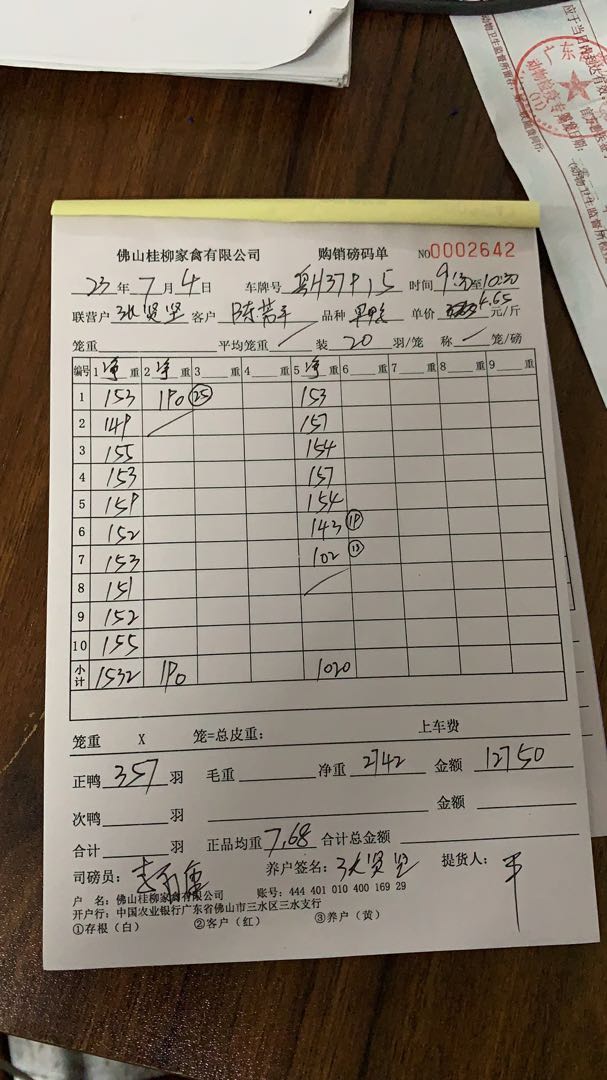 佛山桂柳家禽有限公司 购销磅码单 NO0002642
23年7月4日 车牌号 粤H37P15 时间 9:30至10:30
联营户 张贤坚 客户 陈 品种 单价 4.65 元/斤
笼重 平均笼重 装 20 羽/笼 称 笼/磅
编号 1 净 重 2 净 重 3 重 4 重 5 净 重 6 重 7 重 8 重 9 重
1 153 190 25 153
2 149 157
3 155 154
4 153 157
5 159 154
6 152 143 19
7 153 102 13
8 151
9 152
10 155
小计 1532 190 1020
笼重 X 笼=总皮重: 上车费
正鸭 357 羽 毛重 净重 2742 金额 12750
次鸭 羽 金额
合计 羽 正品均重 7.68 合计总金额
司磅员: 养户签名: 张贤坚 提货人: 平
户 名: 佛山桂柳家禽有限公司 账号: 444 401 010 400 169 29
开户行: 中国农业银行广东省佛山市三水区三水支行
①存根(白) ②客户(红) ③养户(黄)